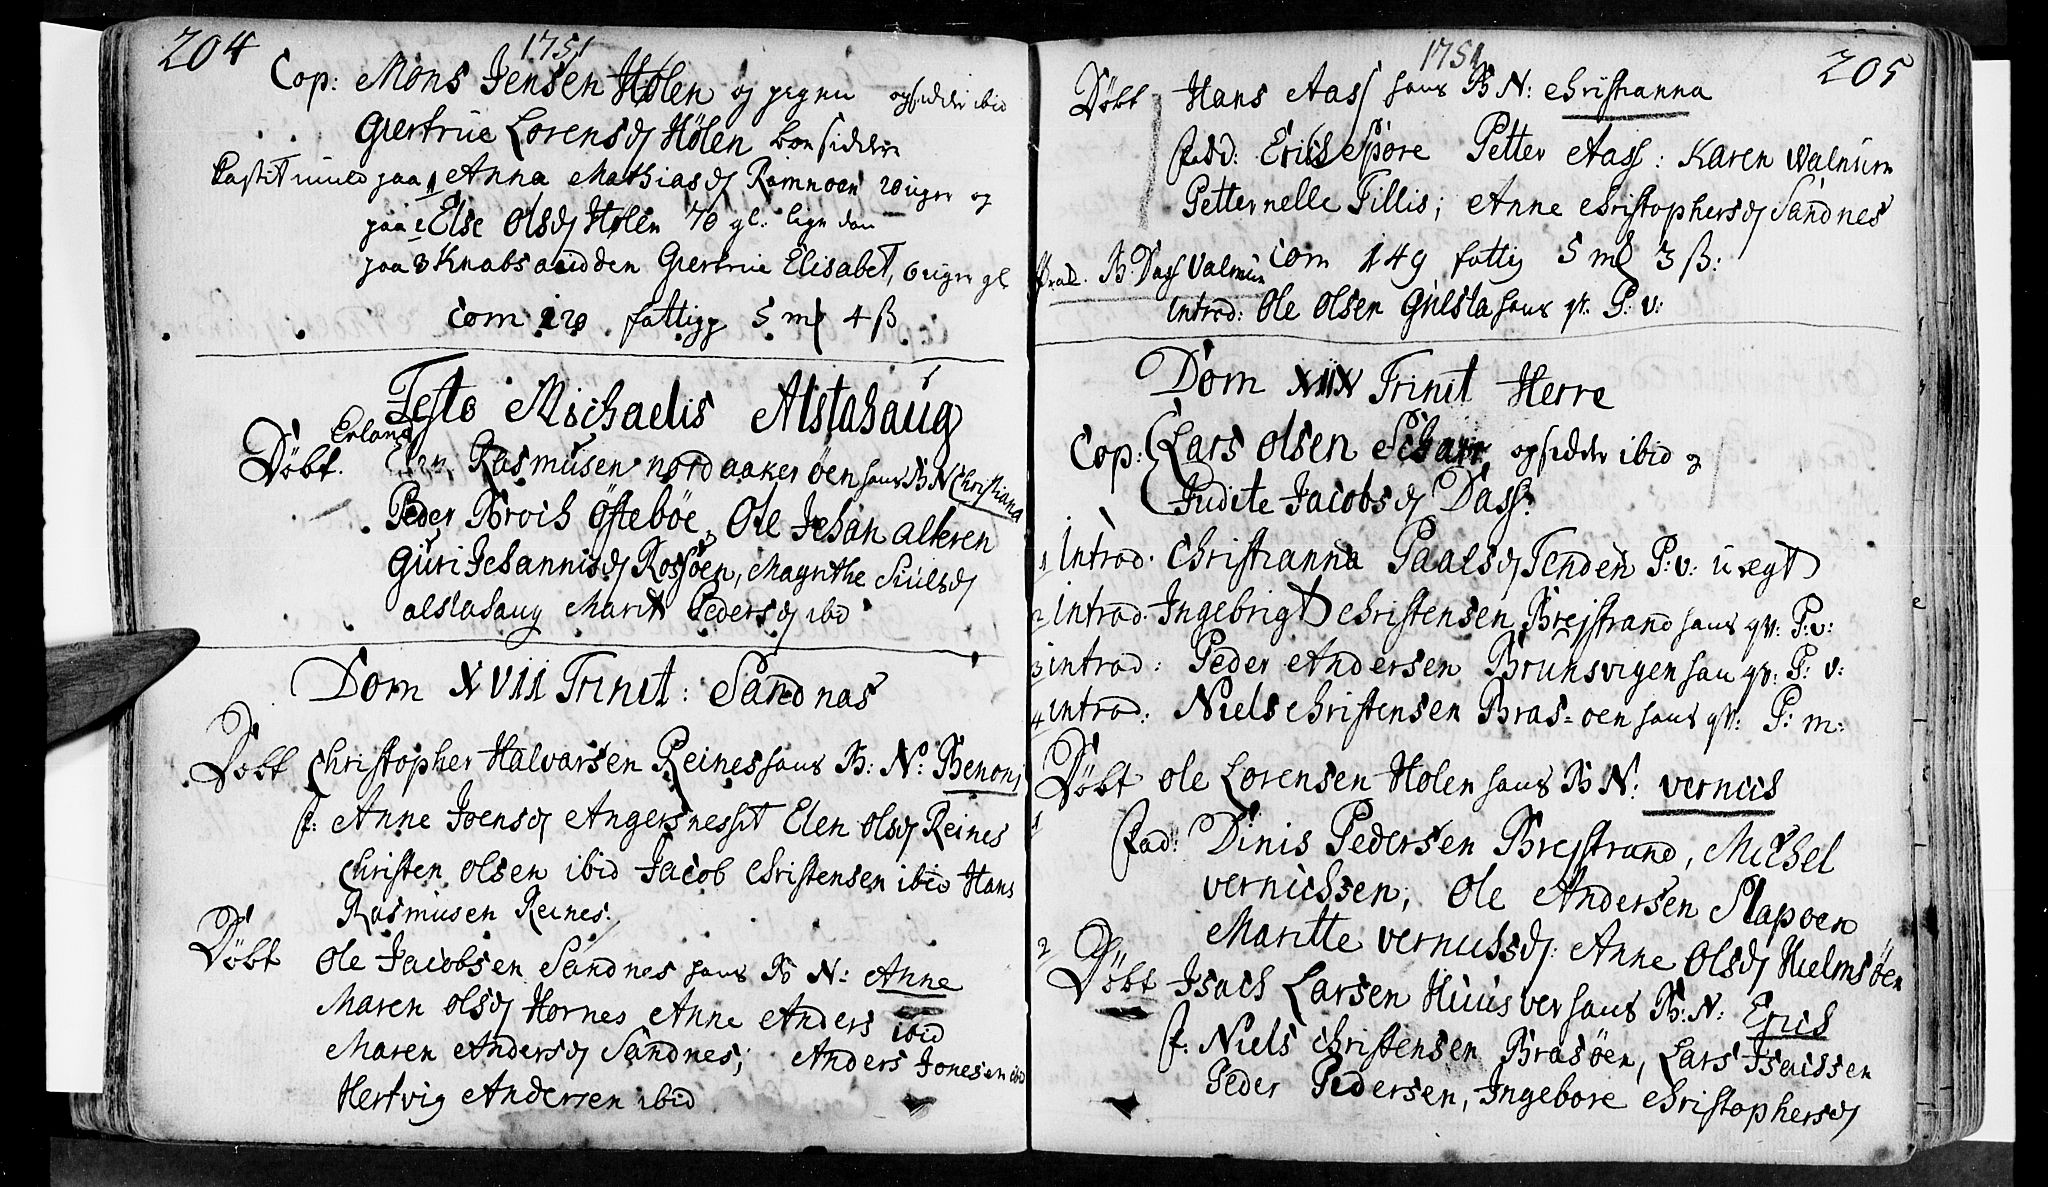 204
1751
Cop: Mons Jensen Hølen og pigen opsidder ibid
Giertrue Lorensd Hølen bonsidder
Castit paa 1 Anna Mathiasd Ramnoen 20 uger og
paa 2 Else Olsd Hølen 70 gl: lign don
paa 3 Knabs Giertrue Elisabet, 6 uger gl
com 120 fattige 5 ml 4 ß
Festo Michaelis Alstahaug
Døbt. Erland Rasmusen nord aaker øen hans B N Christiana
Peder Broch Östebøe, Ole Johan alteren
Guri Johannisd Rossøen, Magrethe Siulsd
alstahaug Marit Pedersd ibd
Dom XVII Trinit: Sandnæs
Døbt Christopher Halvarsen Reines hans B: N: Benoni
f: Anne Joensd Angersnesset Elen Olsd Reines
Christen Olsen ibid Jacob Christensen ibid Hans
Rasmusen Reines.
Døbt Ole Jacobsen Sandnes hans B N: Anne
Maren Olsd Hornes Anne Anders ibid
Maren Andersd Sandnes; Anders Jonesen ibid
Hertvig Andersen ibid
1751
205
Døbt Hans Aass hans B N: Christianna
fad: Erich Spøre Petter Aass: Karen Walnum
Petternelle Tillis; Anne Christophersd Sandnes
Præd. B: Dass Valnum com 149 fattig 5 ml 3 ß:
Introd: Ole Olsen Gulsta hans qv: P: v:
Dom XIIX Trinit Herre
Cop: Lars Olsen Schar, opsidder ibid og
Judite Jacobsd Dass:
1 Introd. Christianna Paalsd Tenden P: v: u ægt
2 Introd. Ingebrigt Christensen Brejstrand hans qv: P: v:
3 introd: Peder Andersen Brunsvigen hans qv: P: v:
4 introd: Niels Christensen Bras=oen hans qv: P: m:
Døbt Ole Lorensen Holen hans B N: vernus
1 fad: Dinis Pedersen Brejstrand, Michel
vernichsen; Ole Andersen Slapoen
Maritte vernussd: Anne Olsd Hielmsøen
2 Døbt Isach Larsen Huusver hans B: N: Erich
f: Niels Christensen Brasøen, Lars Isachsen
Peder Pedersen, Ingebore Christophersd